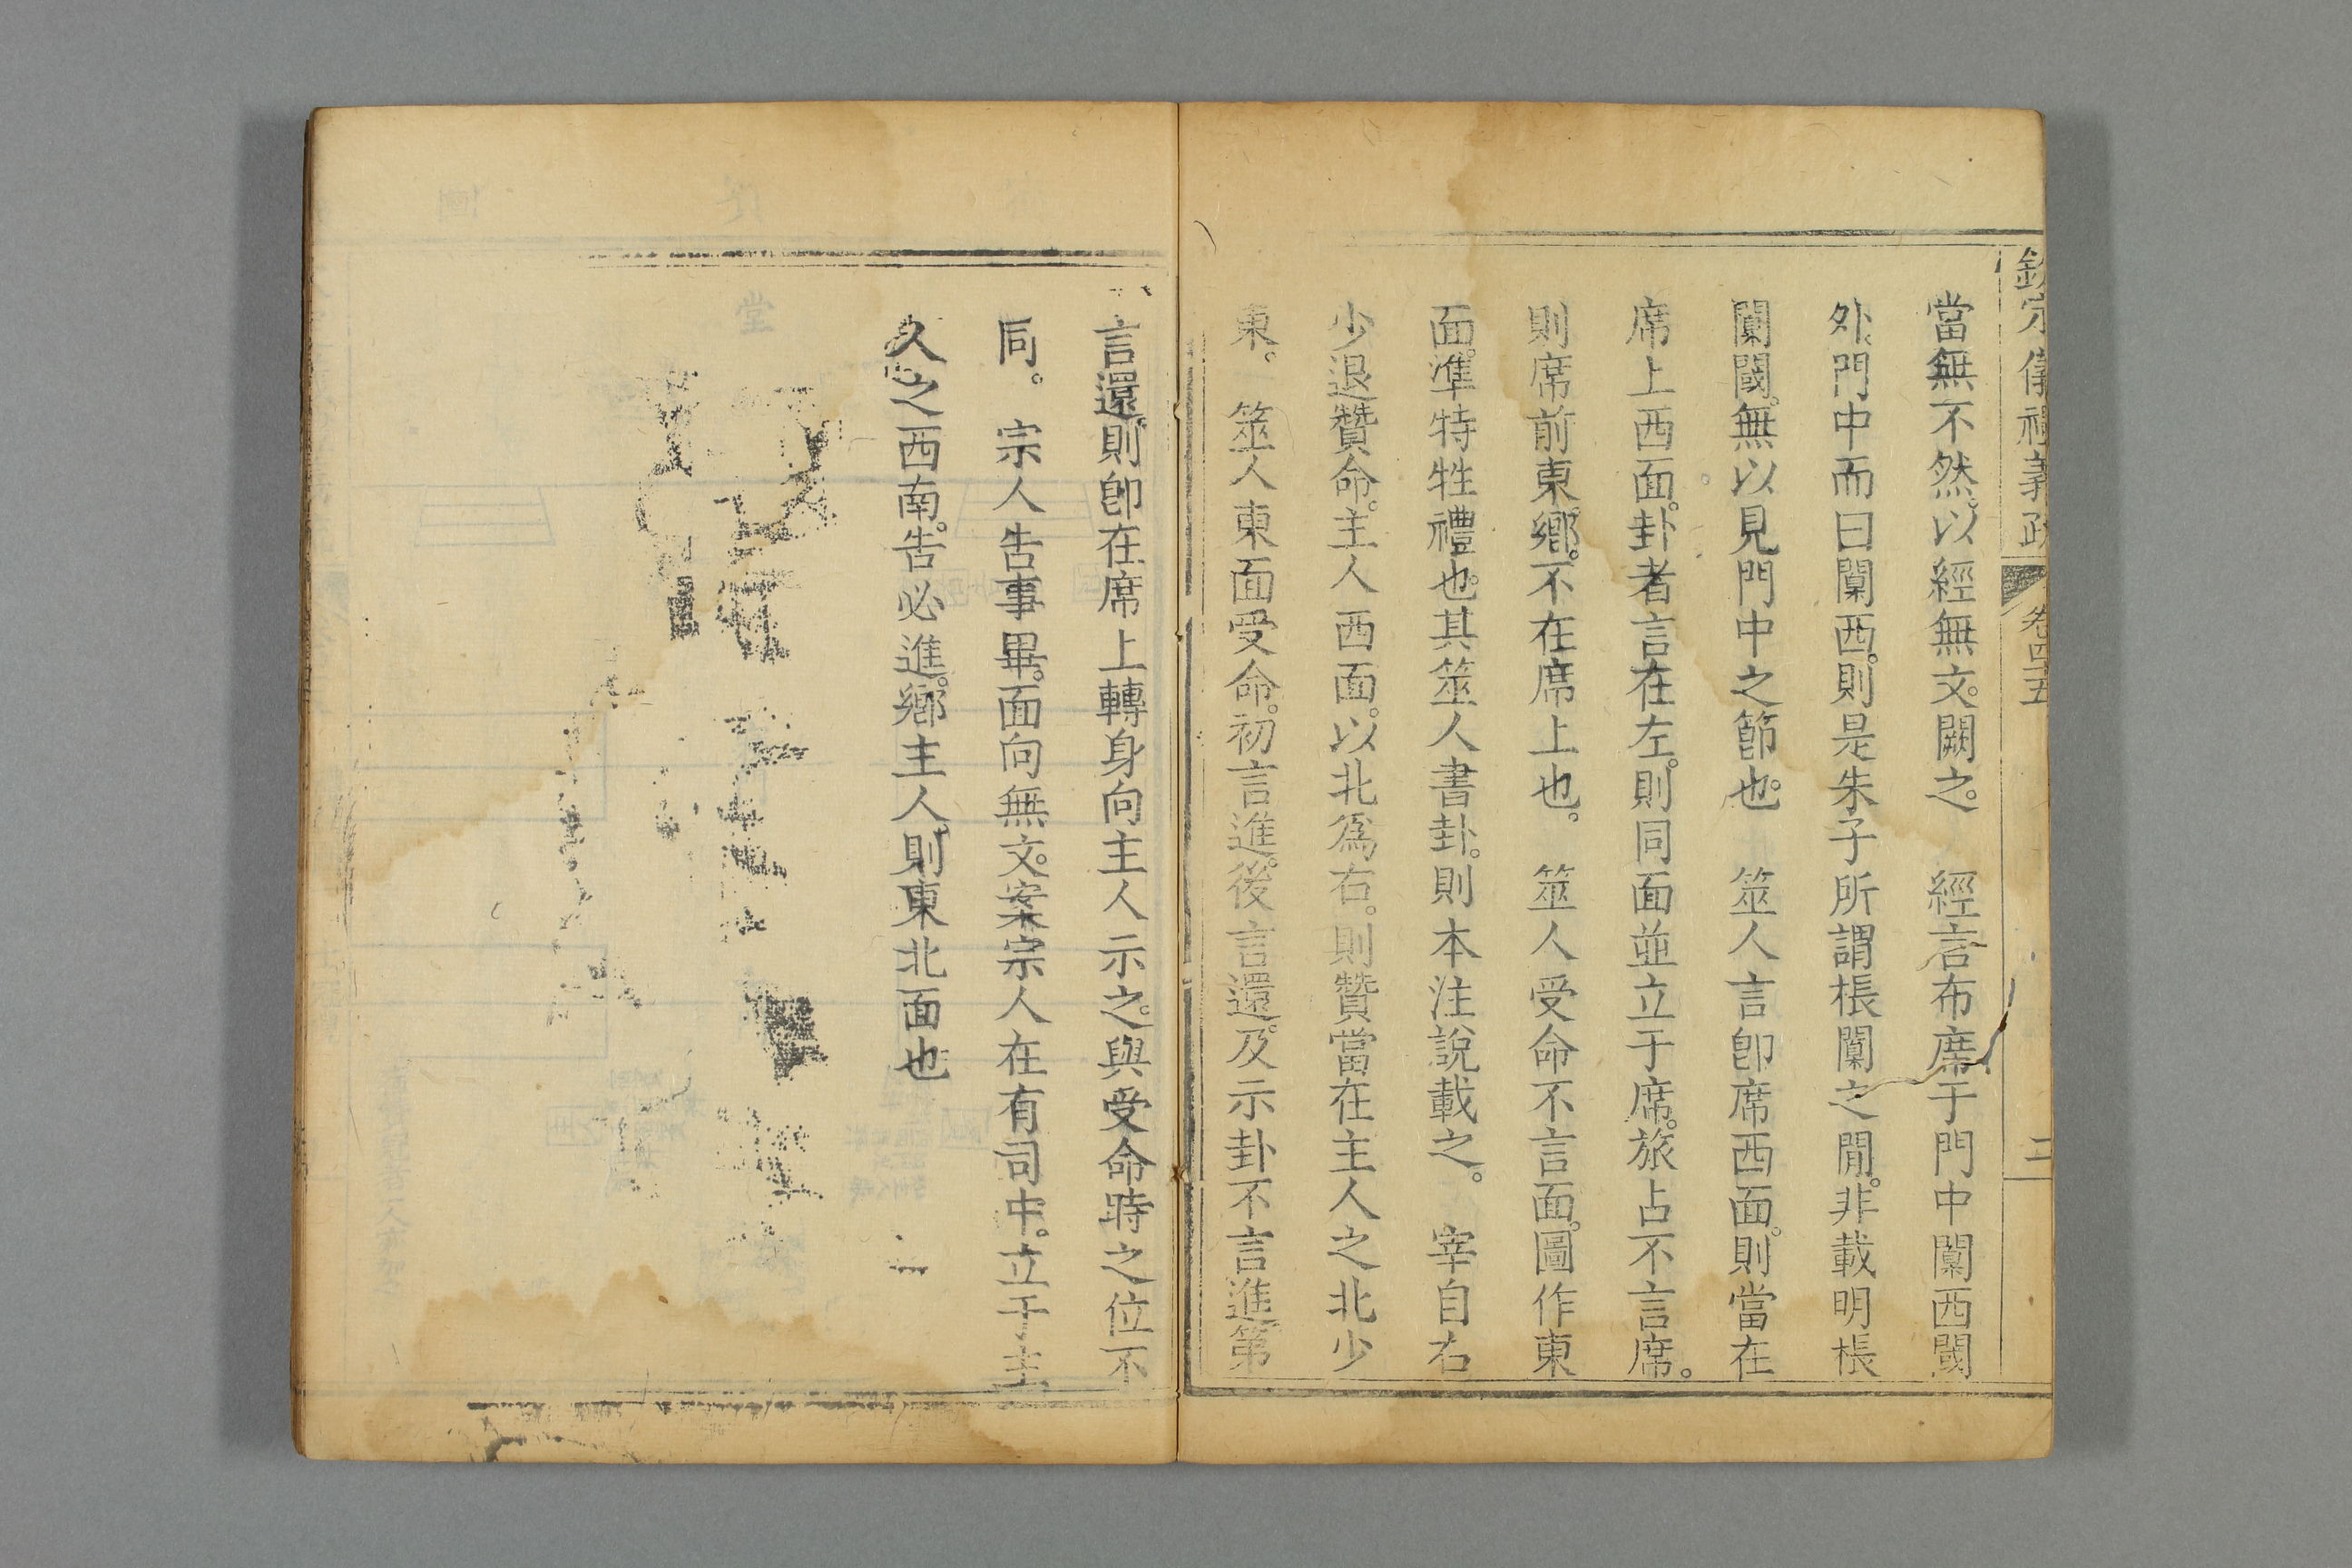 欽定儀禮義疏 卷四五 二
當無不然。以經無文。闕之。 經言布席于門中闑西閾
外。門中而曰闑西。則是朱子所謂棖闑之閒。非載明棖
闑閾。無以見門中之節也。 筮人言卽席西面。則當在
席上西面。卦者言在左。則同面並立于席。旅占不言席。
則席前東鄉。不在席上也。 筮人受命不言面。圖作東
面。準特牲禮也。其筮人書卦。則本注說載之。 宰自右
少退贊命。主人西面。以北爲右。則贊當在主人之北少
東。 筮人東面受命。初言進。後言還。及示卦不言進第
言還。則卽在席上轉身向主人示之。與受命時之位不
同。 宗人告事畢。面向無文。案宗人在有司中。立于主
久之西南。告必進。鄉主人。則東北面也